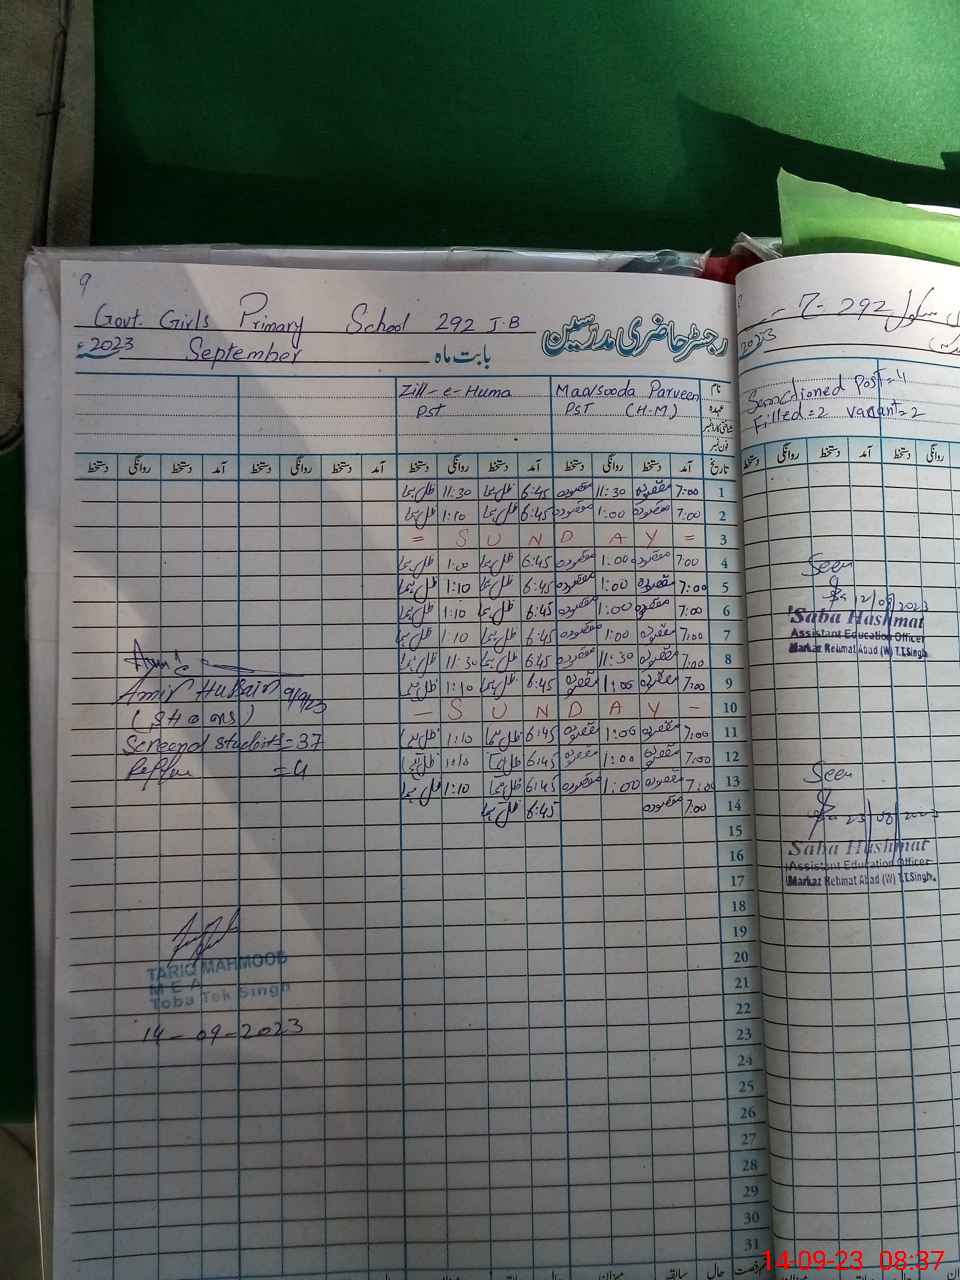 9
Govt. Girls Primary School 292 J.B
رجسٹر حاضری مدرسین
2023 ء September بابت ماہ
Zill-e-Huma Maqsooda Parveen نام
PST PST (H-M) عہدہ
شناختی کارڈ نمبر
فون نمبر
تاریخ آمد دستخط روانگی دستخط آمد دستخط روانگی دستخط آمد دستخط روانگی دستخط آمد دستخط روانگی دستخط
1 7:00 مقصودہ 11:30 مقصودہ 6:45 ظل ہما 11:30 ظل ہما
2 7:00 مقصودہ 1:00 مقصودہ 6:45 ظل ہما 1:10 ظل ہما
3 = S U N D A Y =
4 7:00 مقصودہ 1:00 مقصودہ 6:45 ظل ہما 1:00 ظل ہما
5 7:00 مقصودہ 1:00 مقصودہ 6:45 ظل ہما 1:10 ظل ہما
6 7:00 مقصودہ 1:00 مقصودہ 6:45 ظل ہما 1:10 ظل ہما
7 7:00 مقصودہ 1:00 مقصودہ 6:45 ظل ہما 1:10 ظل ہما
8 7:00 مقصودہ 11:30 مقصودہ 6:45 ظل ہما 11:30 ظل ہما
9 7:00 مقصودہ 1:00 مقصودہ 6:45 ظل ہما 1:10 ظل ہما
10 - S U N D A Y -
11 7:00 مقصودہ 1:00 مقصودہ 6:45 ظل ہما 1:10 ظل ہما
12 7:00 مقصودہ 1:00 مقصودہ 6:45 ظل ہما 1:10 ظل ہما
13 7:00 مقصودہ 1:00 مقصودہ 6:45 ظل ہما 1:10 ظل ہما
14 7:00 مقصودہ 6:45 ظل ہما
15
16
17
18
19
20
21
22
23
24
25
26
27
28
29
30
31
Amir Hussain 9/9/23
Screend students = 37
= 4
TARIQ MAHMOOD
M E A
Toba Tek Singh
14-09-2023
رخصت حال سابقہ میزان
سکول 292
2023
Sanctioned Post = 4
Filled = 2 vacant = 2
دستخط روانگی دستخط آمد دستخط روانگی
Seen
12/09/2023
Saba Hashmat
Assistant Education Officer
Markaz Rehmat Abad (W) T.T.Singh
Seen
Saba Hashmat
Assistant Education Officer
Markaz Rehmat Abad (W) T.T.Singh.
14-09-23 08:37